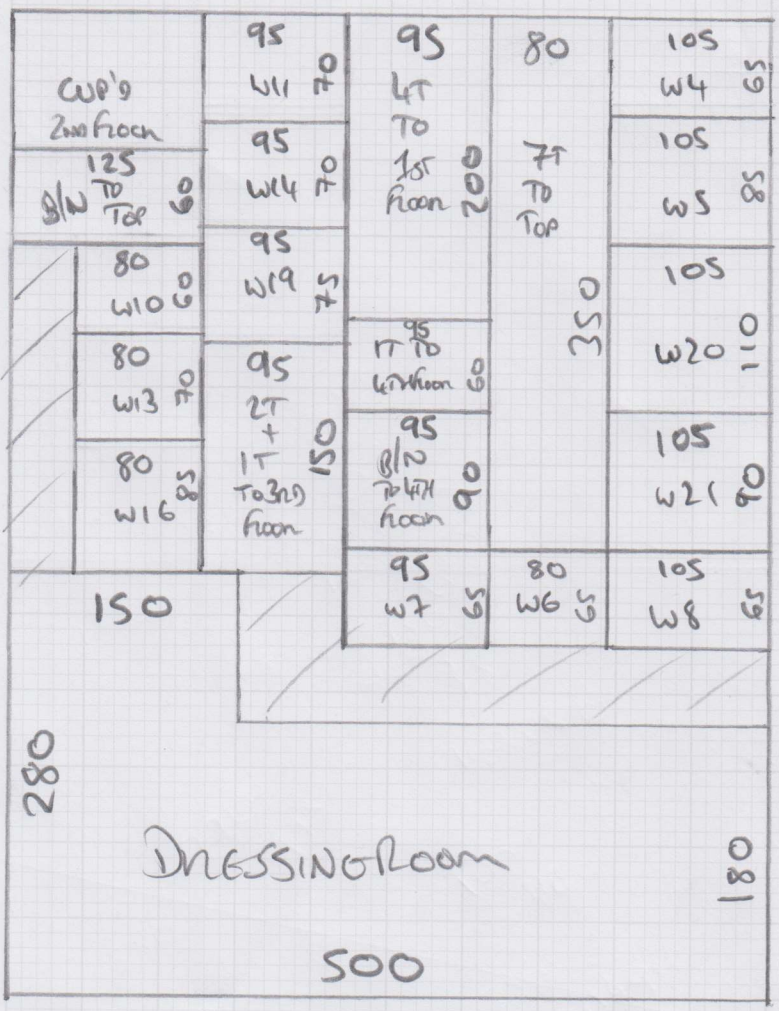 CUP'D
2ND FLOOR
125
B/N TO
TOP
60
80
W10
60
80
W13
70
80
W16
85
95
W11
70
95
W14
70
95
W19
75
95
2T
+
1T
TO 3RD
FLOOR
150
95
4T
TO
1ST
FLOOR
200
95
1T TO
4TH FLOOR
60
95
B/N
TO 4TH
FLOOR
90
95
W7
65
80
7T
TO
TOP
350
80
W6
65
105
W4
65
105
W5
85
105
W20
110
105
W21
90
105
W8
65
150
280
DRESSING ROOM
180
500